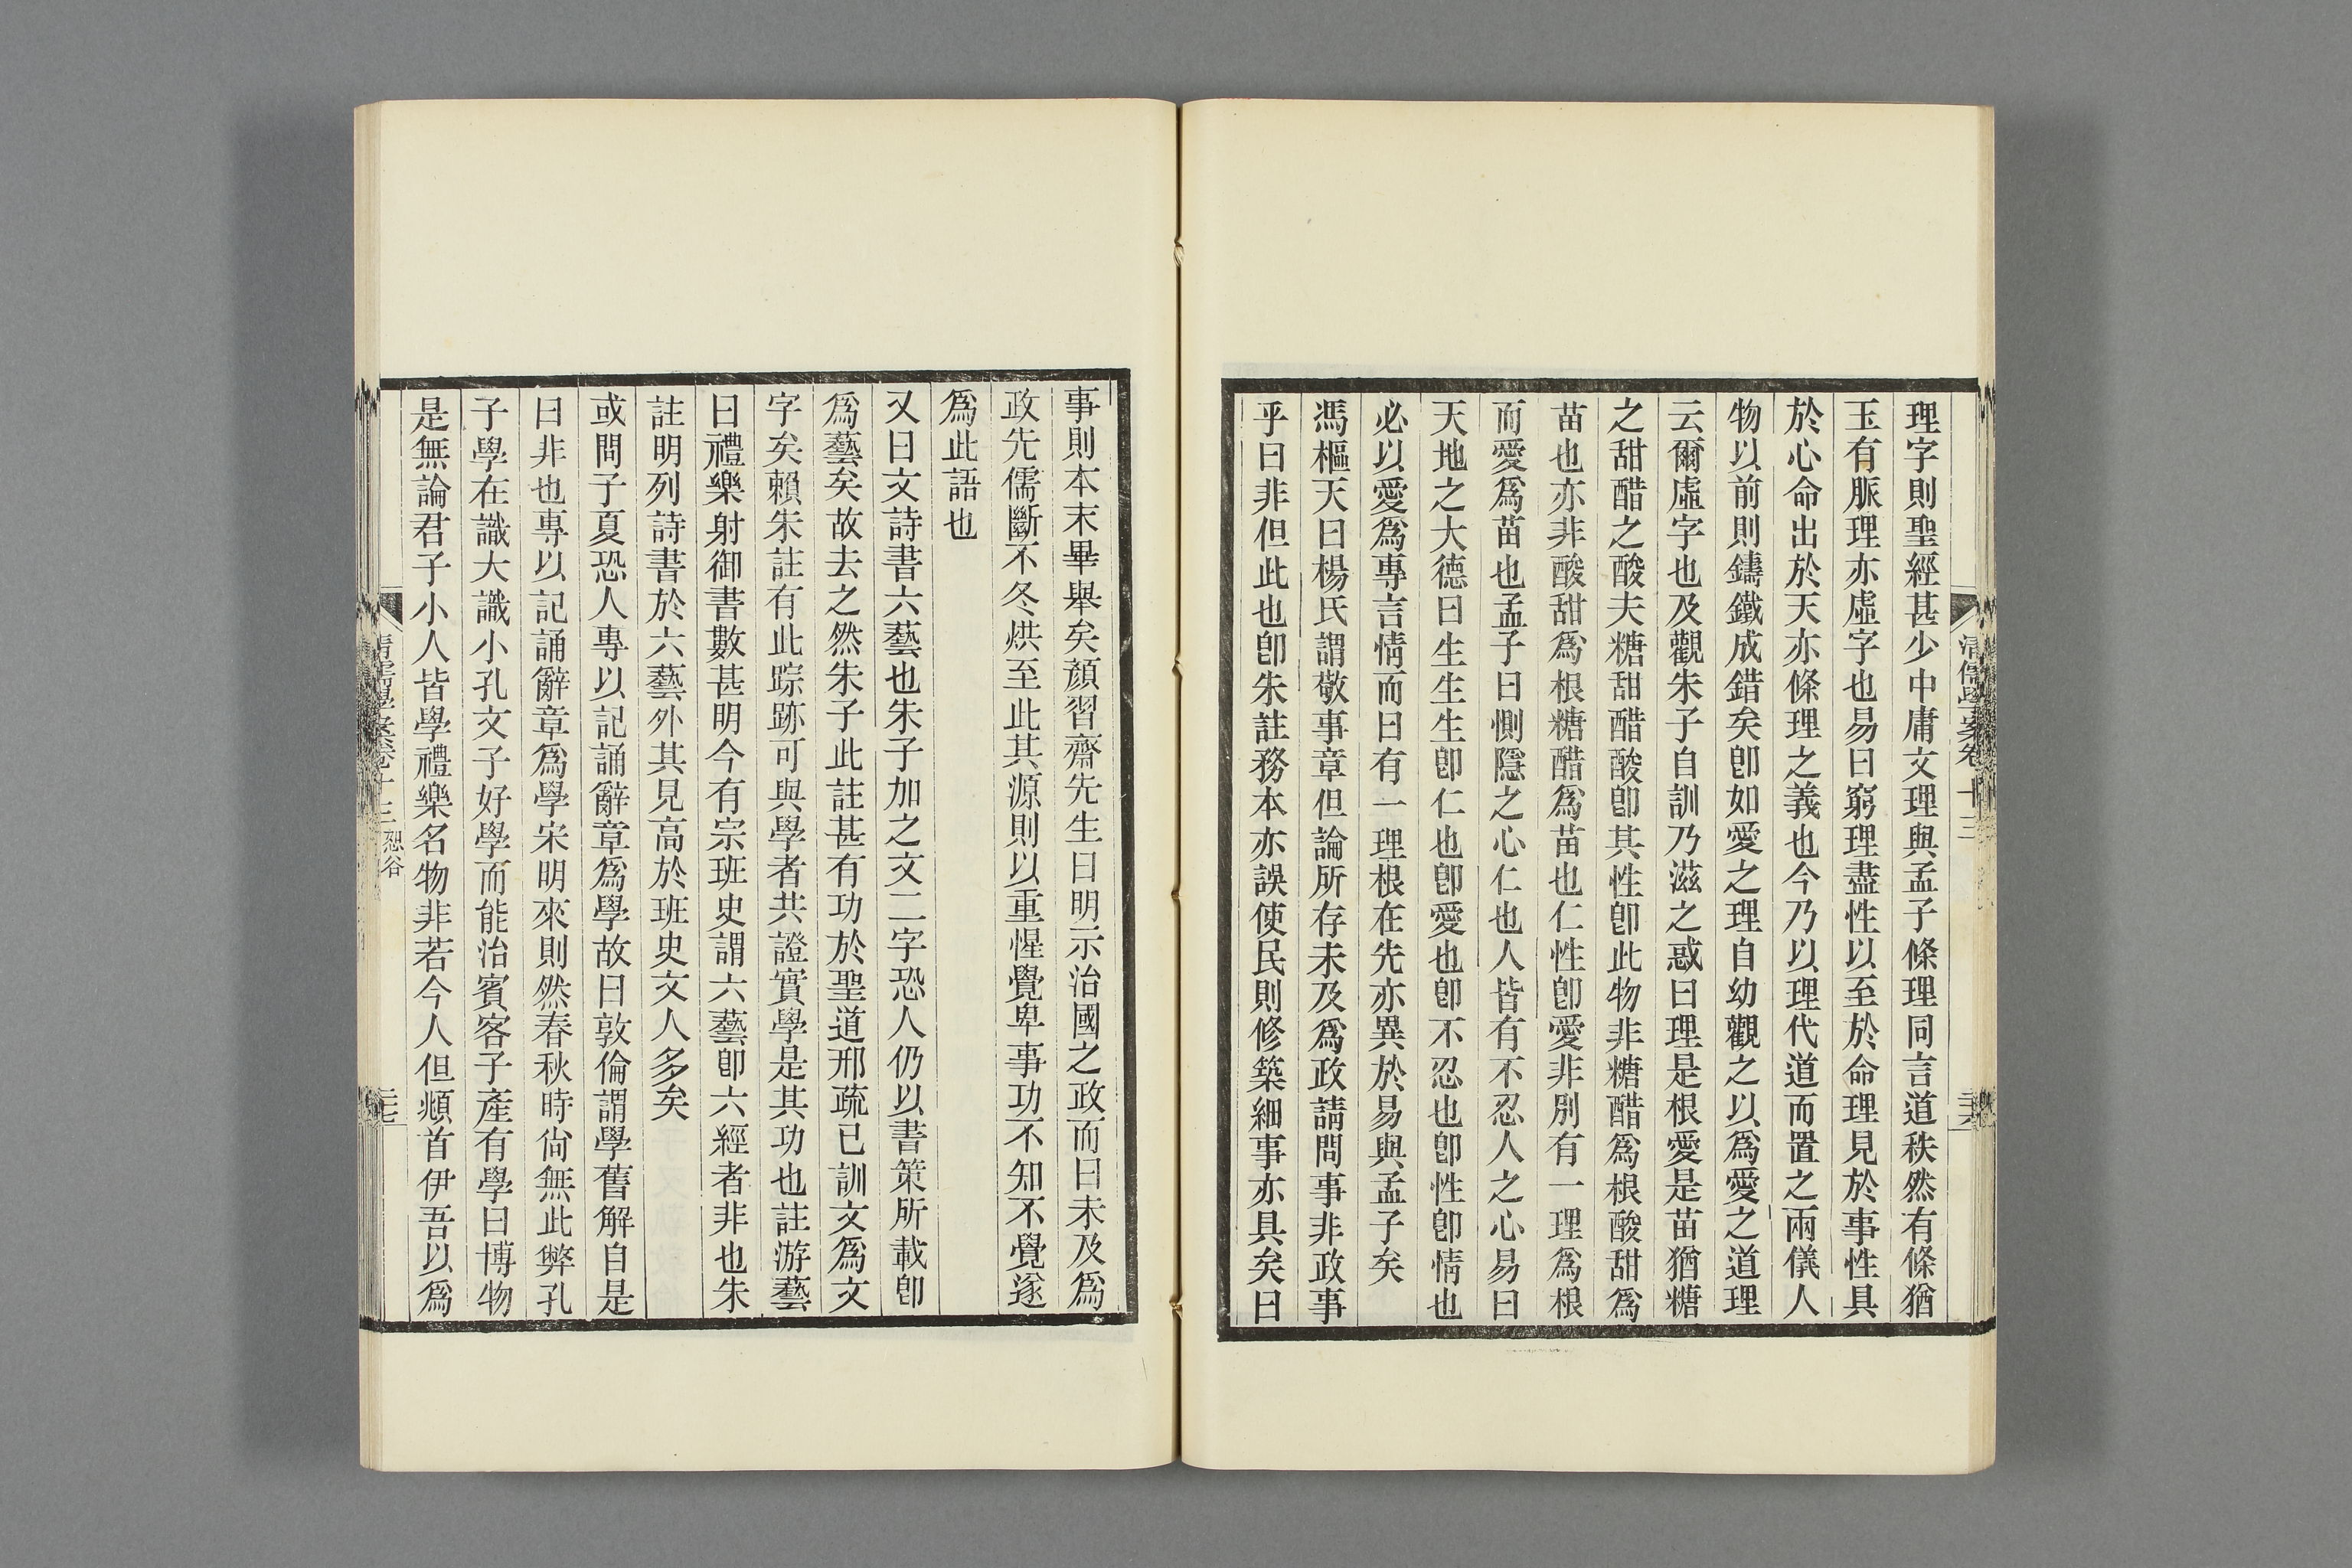 理字則聖經甚少中庸文理與孟子條理同言道秩然有條猶
玉有脈理亦虛字也易曰窮理盡性以至於命理見於事性具
於心命出於天亦條理之義也今乃以理代道而置之兩儀人
物以前則鑄鐵成錯矣卽如愛之理自幼觀之以爲愛之道理
云爾虛字也及觀朱子自訓乃滋之惑曰理是根愛是苗猶糖
之甜醋之酸夫糖甜醋酸卽其性卽此物非糖醋爲根酸甜爲
苗也亦非酸甜爲根糖醋爲苗也仁性卽愛非別有一理爲根
而愛爲苗也孟子曰惻隱之心仁也人皆有不忍人之心易曰
天地之大德曰生生生卽仁也卽愛也卽不忍也卽性卽情也
必以愛爲專言情而曰有一理根在先亦異於易與孟子矣
馮樞天曰楊氏謂敬事章但論所存未及爲政請問事非政事
乎曰非但此也卽朱註務本亦誤使民則修築細事亦具矣曰
清儒學案卷十三
二十六
事則本末畢舉矣顏習齋先生曰明示治國之政而曰未及爲
政先儒斷不冬烘至此其源則以重惺覺卑事功不知不覺遂
爲此語也
又曰文詩書六藝也朱子加之文二字恐人仍以書策所載卽
爲藝矣故去之然朱子此註甚有功於聖道邢疏已訓文爲文
字矣賴朱註有此踪跡可與學者共證實學是其功也註游藝
曰禮樂射御書數甚明今有宗班史謂六藝卽六經者非也朱
註明列詩書於六藝外其見高於班史文人多矣
或問子夏恐人專以記誦辭章爲學故曰敦倫謂學舊解自是
曰非也專以記誦辭章爲學宋明來則然春秋時尙無此弊孔
子學在識大識小孔文子好學而能治賓客子產有學曰博物
是無論君子小人皆學禮樂名物非若今人但頫首伊吾以爲
清儒學案卷十三 恕谷
二十七